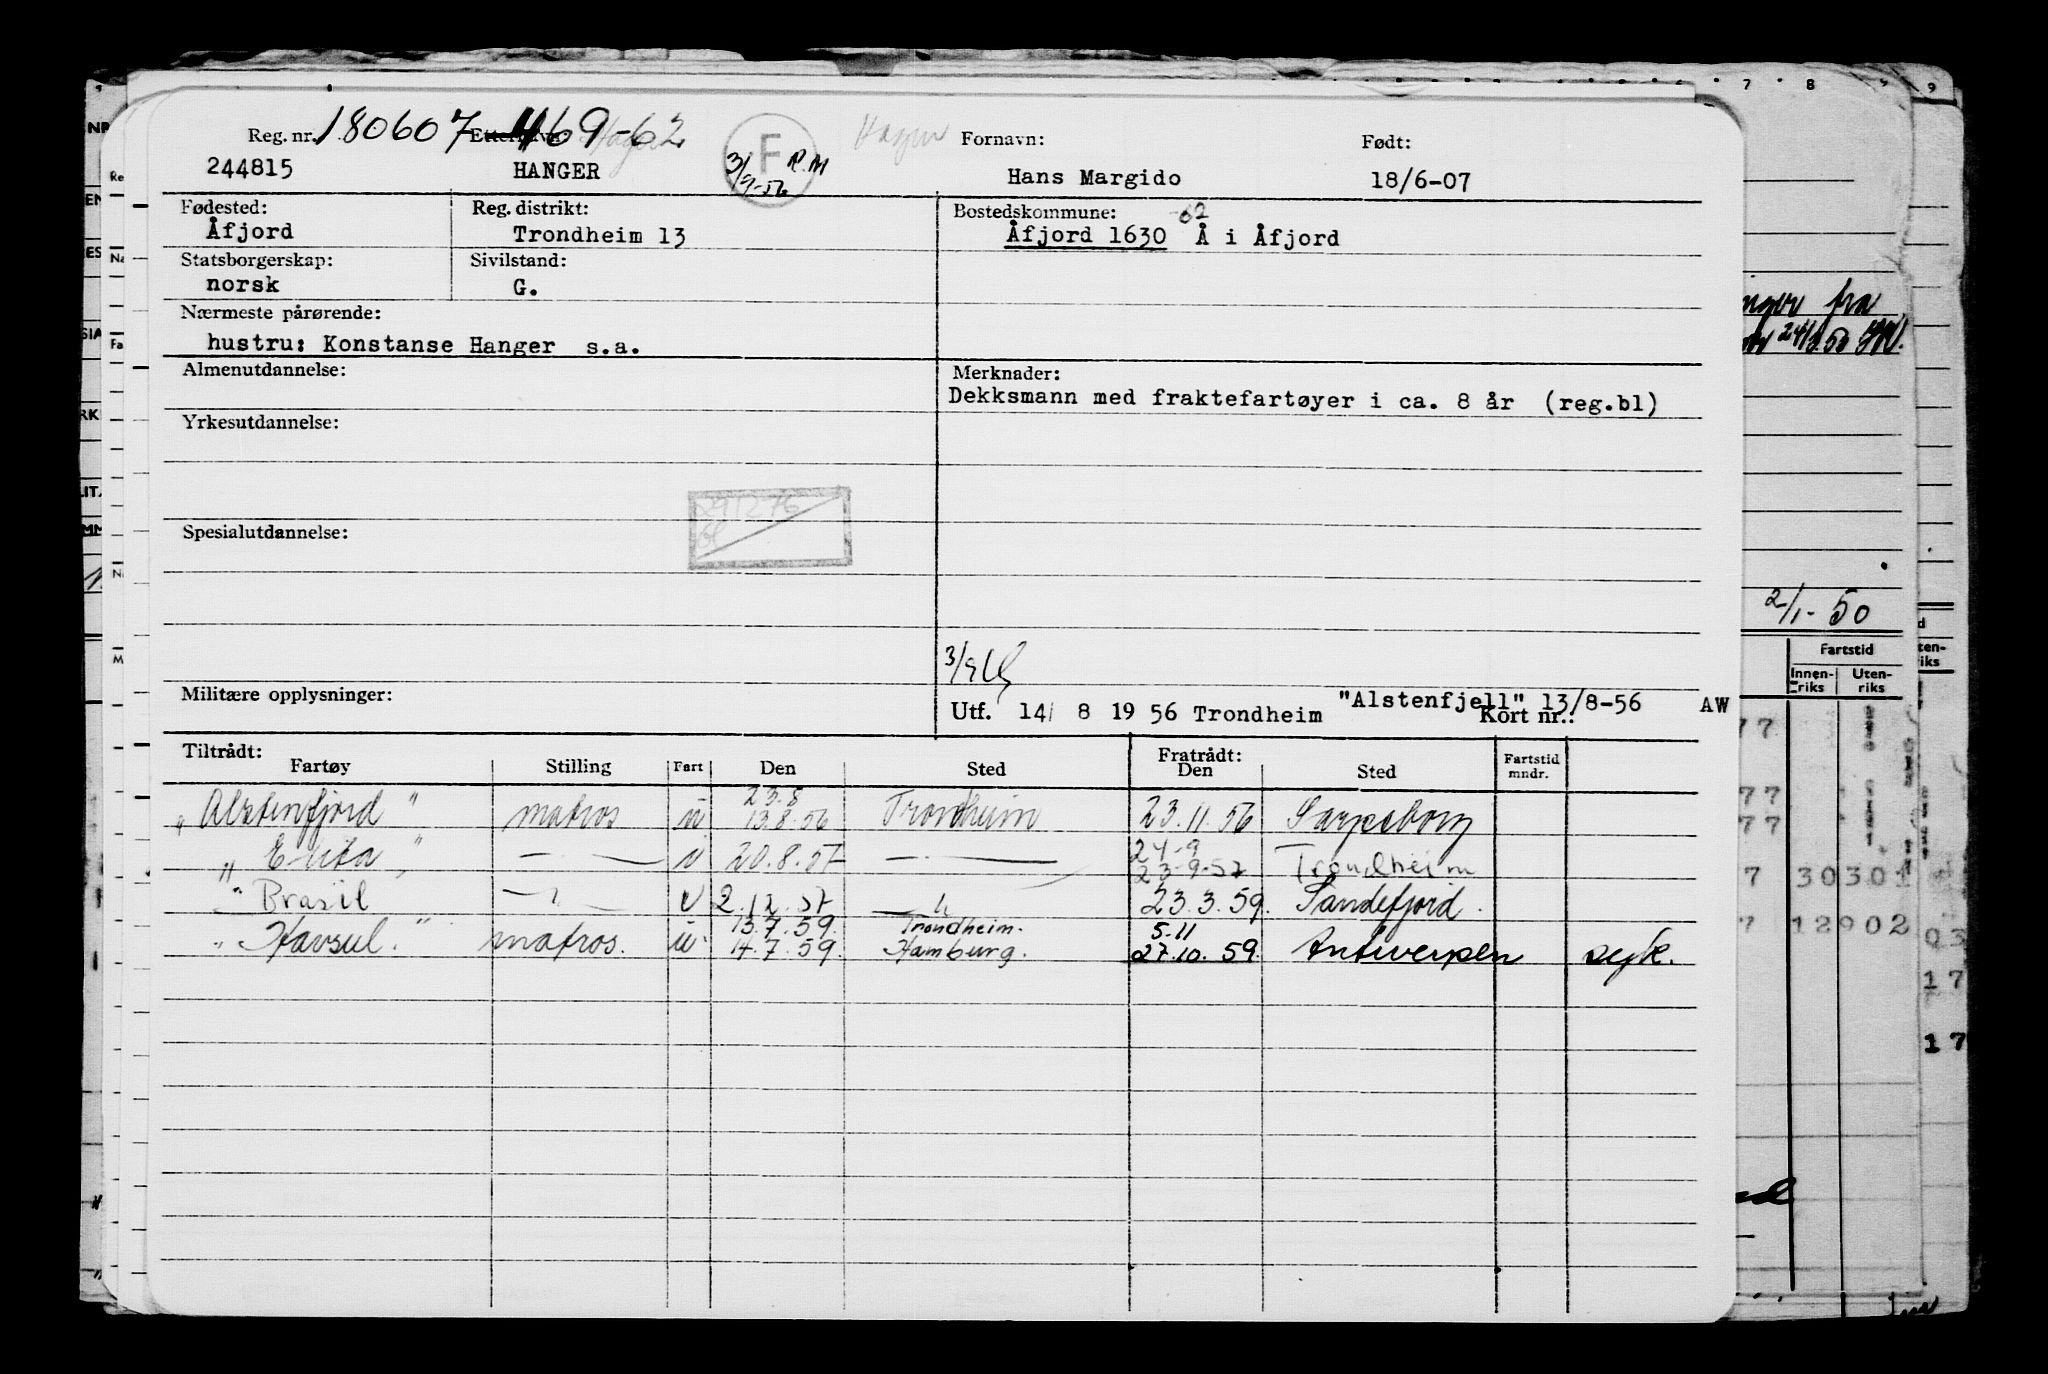 Reg. nr. 180607 469-62 Fornavn: Født:
244815 HANGER F 3/9-56 Hans Margido 18/6-07
Fødested: Reg. distrikt: Bostedskommune: -62
Åfjord Trondheim 13 Åfjord 1630 Å i Åfjord
Statsborgerskap: Sivilstand:
norsk G.
Nærmeste pårørende:
hustru: Konstanse Hanger s.a.
Almenutdannelse: Merknader:
Dekksmann med fraktefartøyer i ca. 8 år (reg.bl)
Yrkesutdannelse:
Spesialutdannelse:
3/9
Militære opplysninger: "Alstenfjell" 13/8-56 AW
Utf. 14/ 8 19 56 Trondheim Kort nr.:
Tiltrådt: Fratrådt: Fartstid
Fartøy Stilling Fart Den Sted Den Sted mndr.
23.8
"Alstenfjord" matros u 13.8.56 Trondheim 23.11.56 Sarpsborg
24-9
" Erita " — " — u 20.8.57 — " — 23-9-57 Trondheim
" Brasil — " — u 2.12.57 — " — 23.3.59. Sandefjord.
13.7.59. Trondheim. 5.11
" Havsul. " matros. u. 14.7.59. Hamburg. 27.10.59. Antwerpen syk.
fra
2/1-50
Fartstid
Innen-riks Uten-riks
30301
12902
03
17
17